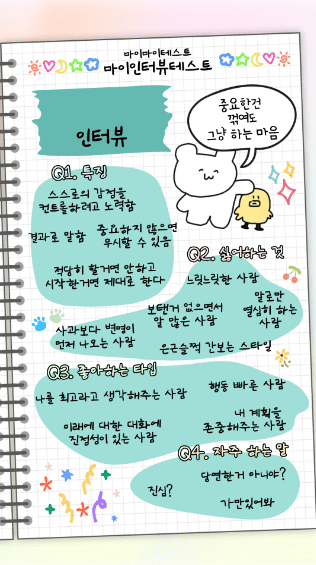 마이마이테스트
마이인터뷰테스트
인터뷰
중요한건
꺾여도
그냥 하는 마음
Q1. 특징
스스로의 감정을
컨트롤하려고 노력함
결과로 말함
중요하지 않으면
무시할 수 있음
적당히 할거면 안하고
시작한거면 제대로 한다
Q2. 싫어하는 것
느릿느릿한 사람
보탠거 없으면서
말 많은 사람
말로만
열심히 하는
사람
사과보다 변명이
먼저 나오는 사람
은근슬쩍 간보는 스타일
Q3. 좋아하는 타입
나를 최고라고 생각해주는 사람
행동 빠른 사람
미래에 대한 대화에
진정성이 있는 사람
내 계획을
존중해주는 사람
Q4. 자주 하는 말
당연한거 아니야?
진심?
가만있어봐